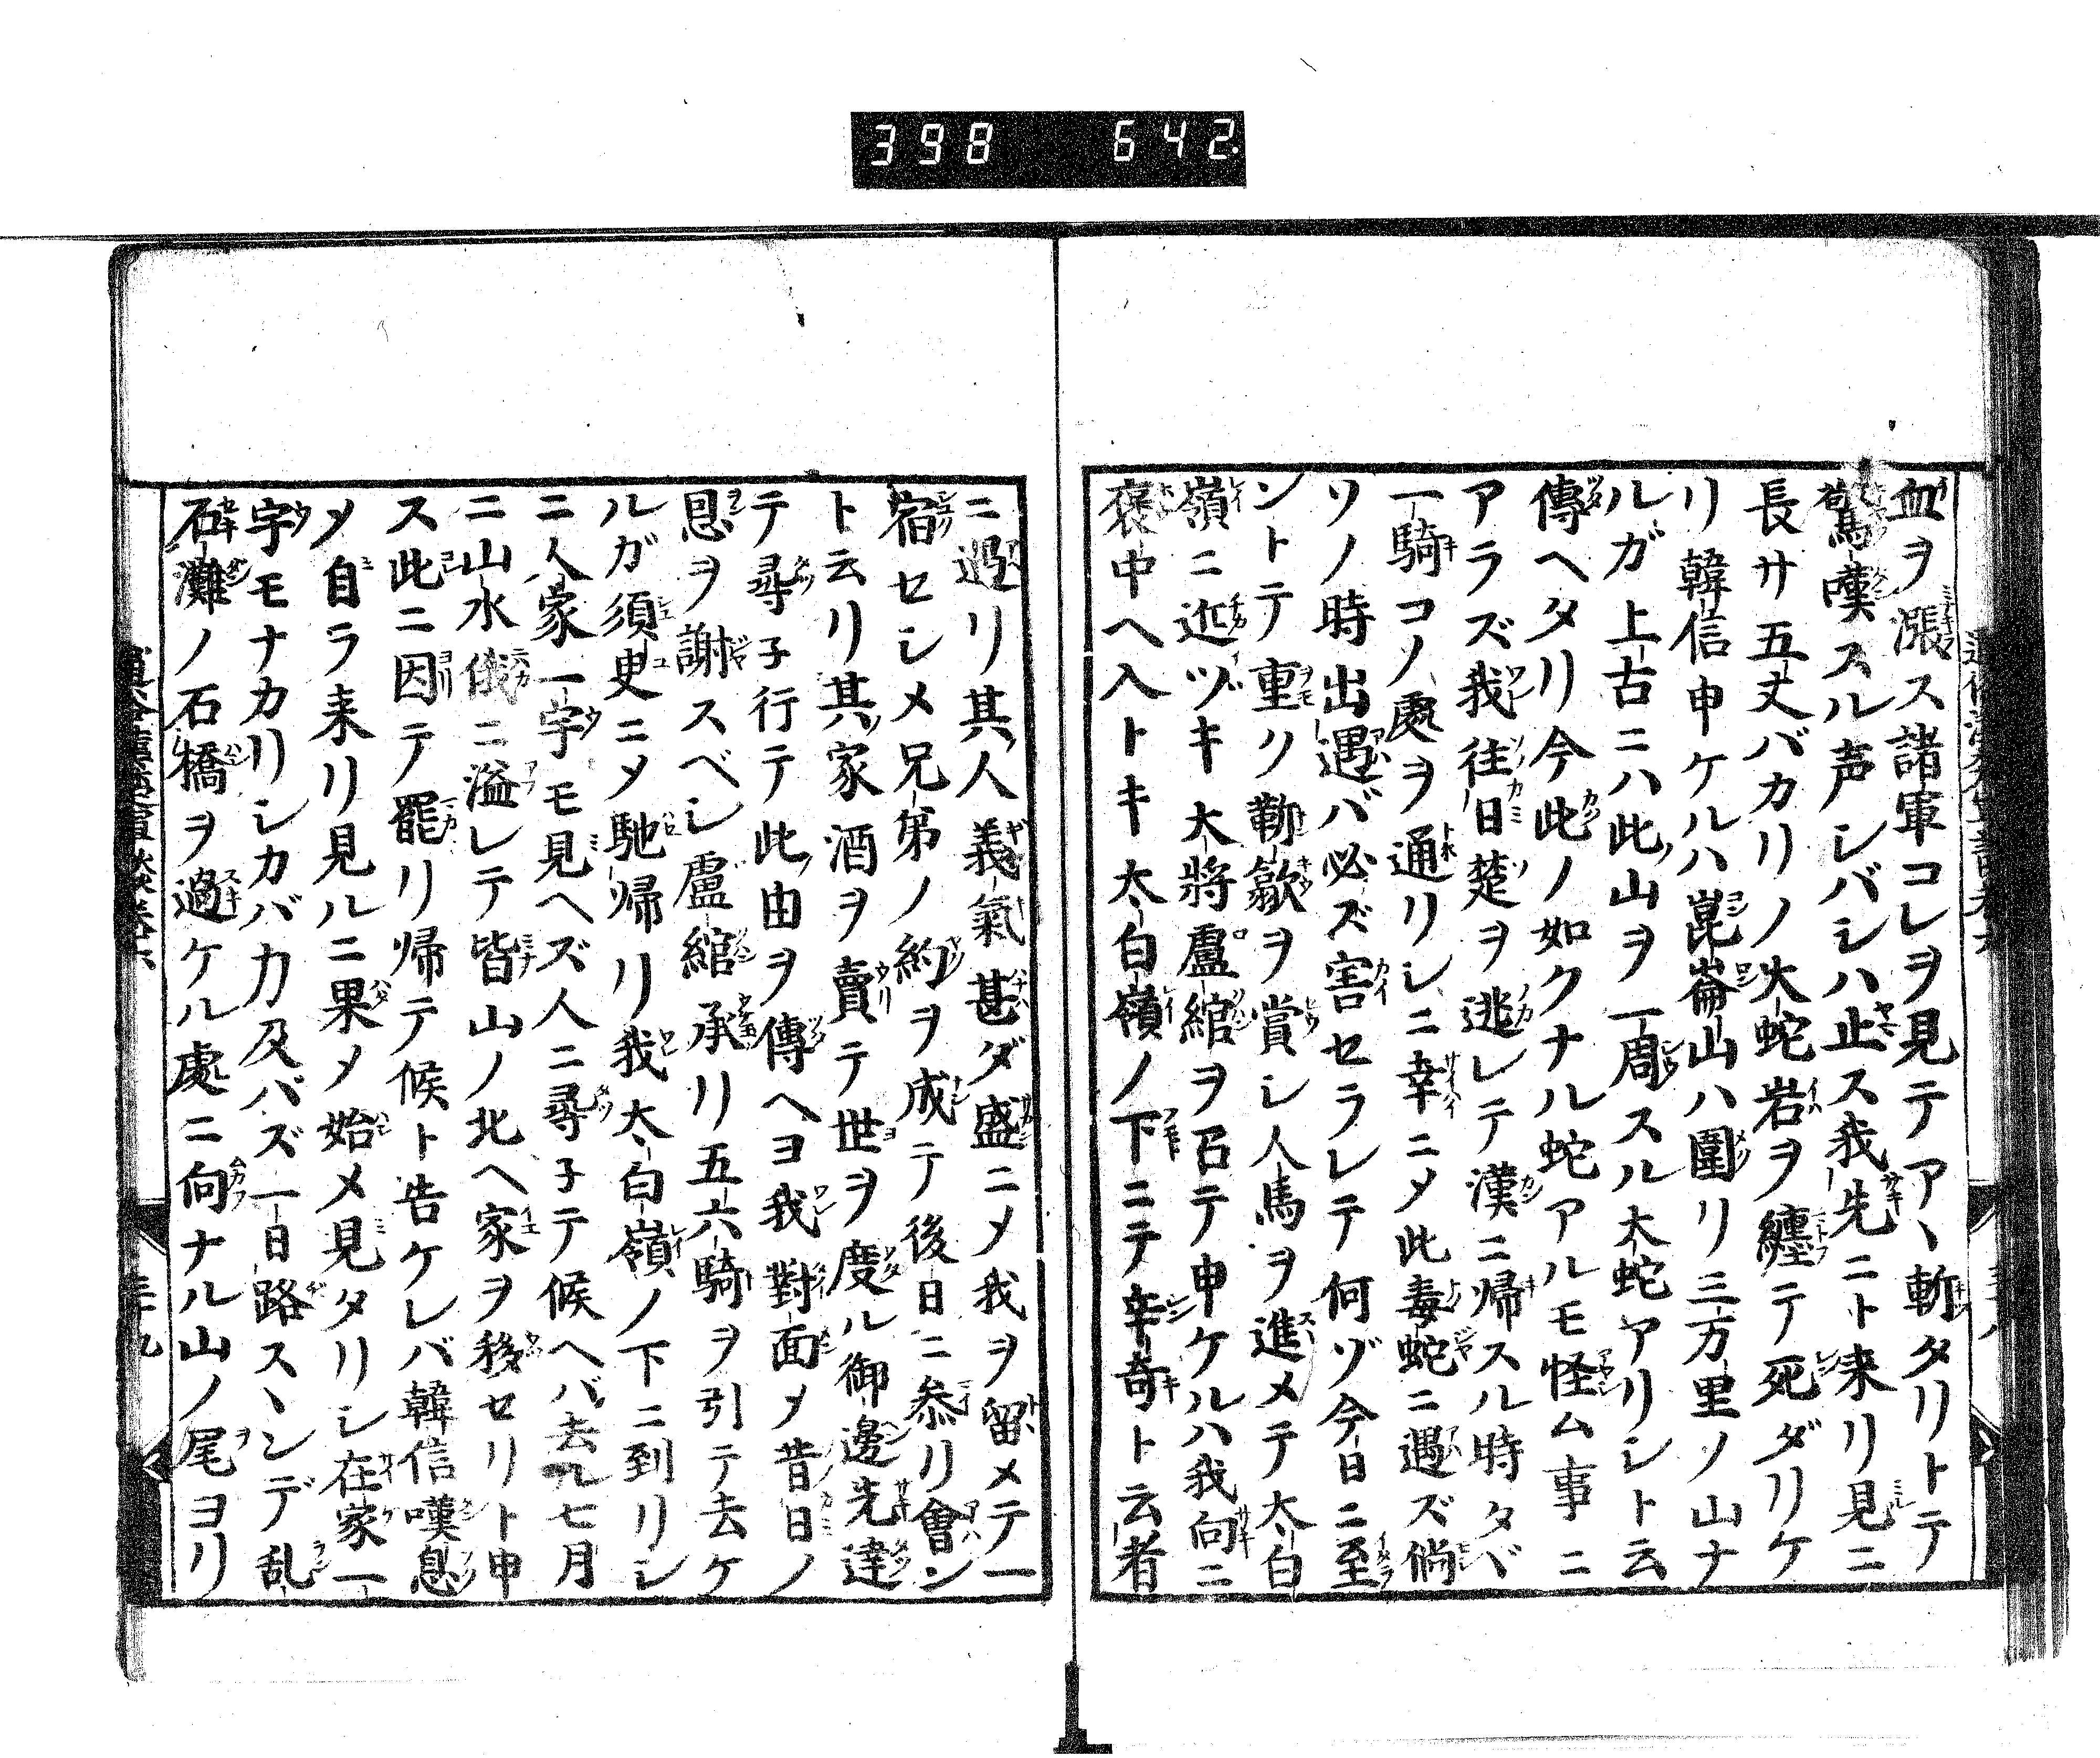 398 642
血ヲ漲ス諸軍コレヲ見テアヽ斬タリトテ
驚嘆スル声シバシハ止ス我先ニト来リ見ニ
長サ五丈バカリノ大蛇岩ヲ纏テ死ダリケ
リ韓信申ケルハ崑崙山ハ圍リ三万里ノ山ナ
ルガ上古ニハ此山ヲ一周スル大蛇アリシト云
傳ヘタリ今此ノ如クナル蛇アルモ怪ム事ニ
アラズ我往日楚ヲ逃レテ漢ニ帰スル時タヾ
一騎コノ處ヲ通リシニ幸ニメ此毒蛇ニ遇ズ倘
ソノ時出遇バ必ズ害セラレテ何ゾ今日ニ至
ントテ重ク靳歙ヲ賞シ人馬ヲ進メテ太白
嶺ニ近ヅキ大將盧綰ヲ召テ申ケルハ我向ニ
褒中ヘ入トキ太白嶺ノ下ニテ辛奇ト云者
ニ遇リ其人義氣甚ダ盛ニメ我ヲ留メテ一
宿セシメ兄弟ノ約ヲ成テ後日ニ参リ會ン
ト云リ其家酒ヲ賣テ世ヲ度ル御邊先達
テ尋子行テ此由ヲ傳ヘヨ我對面メ昔日ノ
恩ヲ謝スベシ盧綰承リ五六騎ヲ引テ去ケ
ルガ須臾ニメ馳帰リ我太白嶺ノ下ニ到リシ
ニ人家一宇モ見ヘズ人ニ尋子テ候ヘバ去ル七月
ニ山水俄ニ溢レテ皆山ノ北ヘ家ヲ移セリト申
ス此ニ因テ罷リ帰テ候ト告ケレバ韓信嘆息
メ自ラ来リ見ルニ果メ始メ見タリシ在家一
宇モナカリシカバ力及バズ一日路スヽンデ乱
石灘ノ石橋ヲ過ケル處ニ向ナル山ノ尾ヨリ